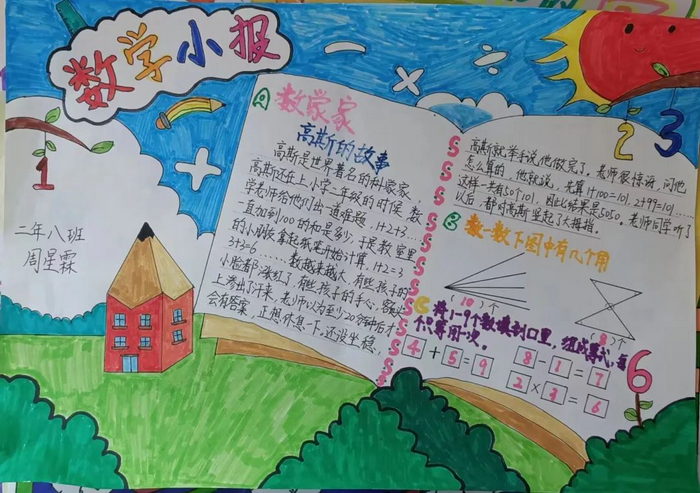 数学小报
1
2
3
二年八班
周星霖
A 数学家
高斯的故事
高斯是世界著名的科学家，
高斯还在上小学二年级的时候，数
学老师给他们出一道难题，1+2+3……
一直加到100的和是多少，于是教室里
的小朋友拿起纸来开始计算，1+2=3
3+3=6……数越来越大，有些孩子的
小脸都涨红了，有些孩子的手心、额头
上渗出了汗来，老师以为至少20分钟后才
会有答案，正想休息一下，还没坐稳，
高斯就举手说他做完了。老师很惊讶，问他
怎么算的，他就说，先算1+100=101，2+99=101……
这样一共有50个101，因此结果是5050。老师同学听了
以后，都对高斯竖起了大拇指。
B 数一数下图中有几个角
(10)个
(8)个
C 将1-9个数填到口里，组成算式，每
个只等用一次。
4+5=9
8-1=7
2×3=6
6